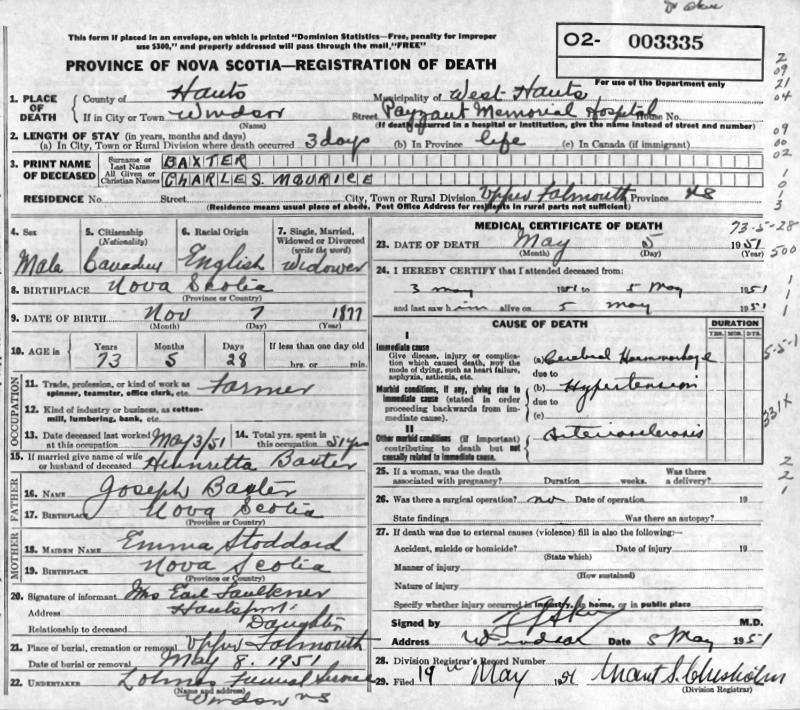 Dr
This form if placed in an envelope, on which is printed "Dominion Statistics—Free, penalty for improper
use $300," and properly addressed will pass through the mail, "FREE"
02- 003335
PROVINCE OF NOVA SCOTIA—REGISTRATION OF DEATH
For use of the Department only
1. PLACE OF DEATH County of Hants Municipality of West Hants
If in City or Town Windsor Street Payzant Memorial Hospital House No.
(Name) (If death occurred in a hospital or institution, give the name instead of street and number)
2. LENGTH OF STAY (in years, months and days)
(a) In City, Town or Rural Division where death occurred 3 days (b) In Province life (c) In Canada (if immigrant)
3. PRINT NAME OF DECEASED Surname or Last Name BAXTER
All Given or Christian Names CHARLES. MOURICE
RESIDENCE No. Street City, Town or Rural Division Upper Falmouth Province NS
(Residence means usual place of abode. Post Office Address for residents in rural parts not sufficient)
2
09
21
04
09
00
02
1
0
1
3
4. Sex Male
5. Citizenship (Nationality)
6. Racial Origin English
7. Single, Married, Widowed or Divorced (write the word) Widower
8. BIRTHPLACE Nova Scotia
(Province or Country)
9. DATE OF BIRTH Nov 7 1877
(Month) (Day) (Year)
10. AGE in Years 73 Months 5 Days 28 If less than one day old
hrs. or min.
OCCUPATION
11. Trade, profession, or kind of work as spinner, teamster, office clerk, etc. Farmer
12. Kind of industry or business, as cotton-mill, lumbering, bank, etc.
13. Date deceased last worked at this occupation May 3/51 14. Total yrs. spent in this occupation 51 yrs
15. If married give name of wife or husband of deceased Henrietta Baxter
FATHER
16. NAME Joseph Baxter
17. BIRTHPLACE Nova Scotia
(Province or Country)
MOTHER
18. MAIDEN NAME Emma Stoddard
19. BIRTHPLACE Nova Scotia
(Province or Country)
20. Signature of informant Mrs Earl Faulkner
Address Hantsport
Relationship to deceased Daughter
21. Place of burial, cremation or removal Upper Falmouth
Date of burial or removal May 8. 1951
22. UNDERTAKER Funeral Service
(Name and address)
Windsor NS
MEDICAL CERTIFICATE OF DEATH
73-5-28
23. DATE OF DEATH May 5 1951
(Month) (Day) (Year)
500
24. I HEREBY CERTIFY that I attended deceased from:
3 May 1951 to 5 May 1951
and last saw him alive on 5 May 1951
1
1
1
CAUSE OF DEATH DURATION
YRS. MOS. DYS.
I
Immediate cause
Give disease, injury or complication which caused death, not the mode of dying, such as heart failure, asphyxia, asthenia, etc.
(a) Cerebral Haemorrhage
due to
Morbid conditions, if any, giving rise to immediate cause (stated in order proceeding backwards from immediate cause).
(b) Hypertension
due to
(c)
II
Other morbid conditions (if important) contributing to death but not causally related to immediate cause.
Arteriosclerosis
5-5-1
331X
2
2
1
25. If a woman, was the death associated with pregnancy? Duration weeks. Was there a delivery?
26. Was there a surgical operation? no Date of operation 19
State findings Was there an autopsy?
27. If death was due to external causes (violence) fill in also the following:—
Accident, suicide or homicide? Date of injury 19
(State which)
Manner of injury
(How sustained)
Nature of injury
Specify whether injury occurred in industry, in home, or in public place
Signed by M.D.
Address Windsor Date 5 May 1951
28. Division Registrar's Record Number
29. Filed 19 May 1951 Grant S. Chisholm
(Division Registrar)